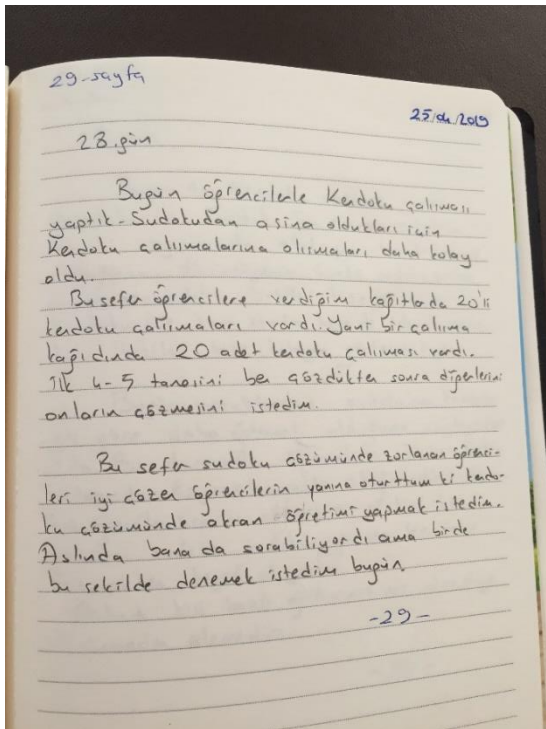 29-sayfa
25/04/2019
28.gün
Bugün öğrencilerle Kendoku çalışması
yaptık. Sudokudan aşina oldukları için
Kendoku çalışmalarına alışmaları daha kolay
oldu.
Bu sefer öğrencilere verdiğim kağıtlarda 20'li
kendoku çalışmaları vardı. Yani bir çalışma
kağıdında 20 adet kendoku çalışması vardı.
İlk 4-5 tanesini ben çözdükten sonra diğerlerini
onların çözmesini istedim.
Bu sefer sudoku çözümünde zorlanan öğrenci-
leri iyi çözen öğrencilerin yanına oturttum ki kendo-
ku çözümünde akran öğretimi yapmak istedim.
Aslında bana da sorabiliyordı ama birde
bu şekilde denemek istedim bugün.
-29-